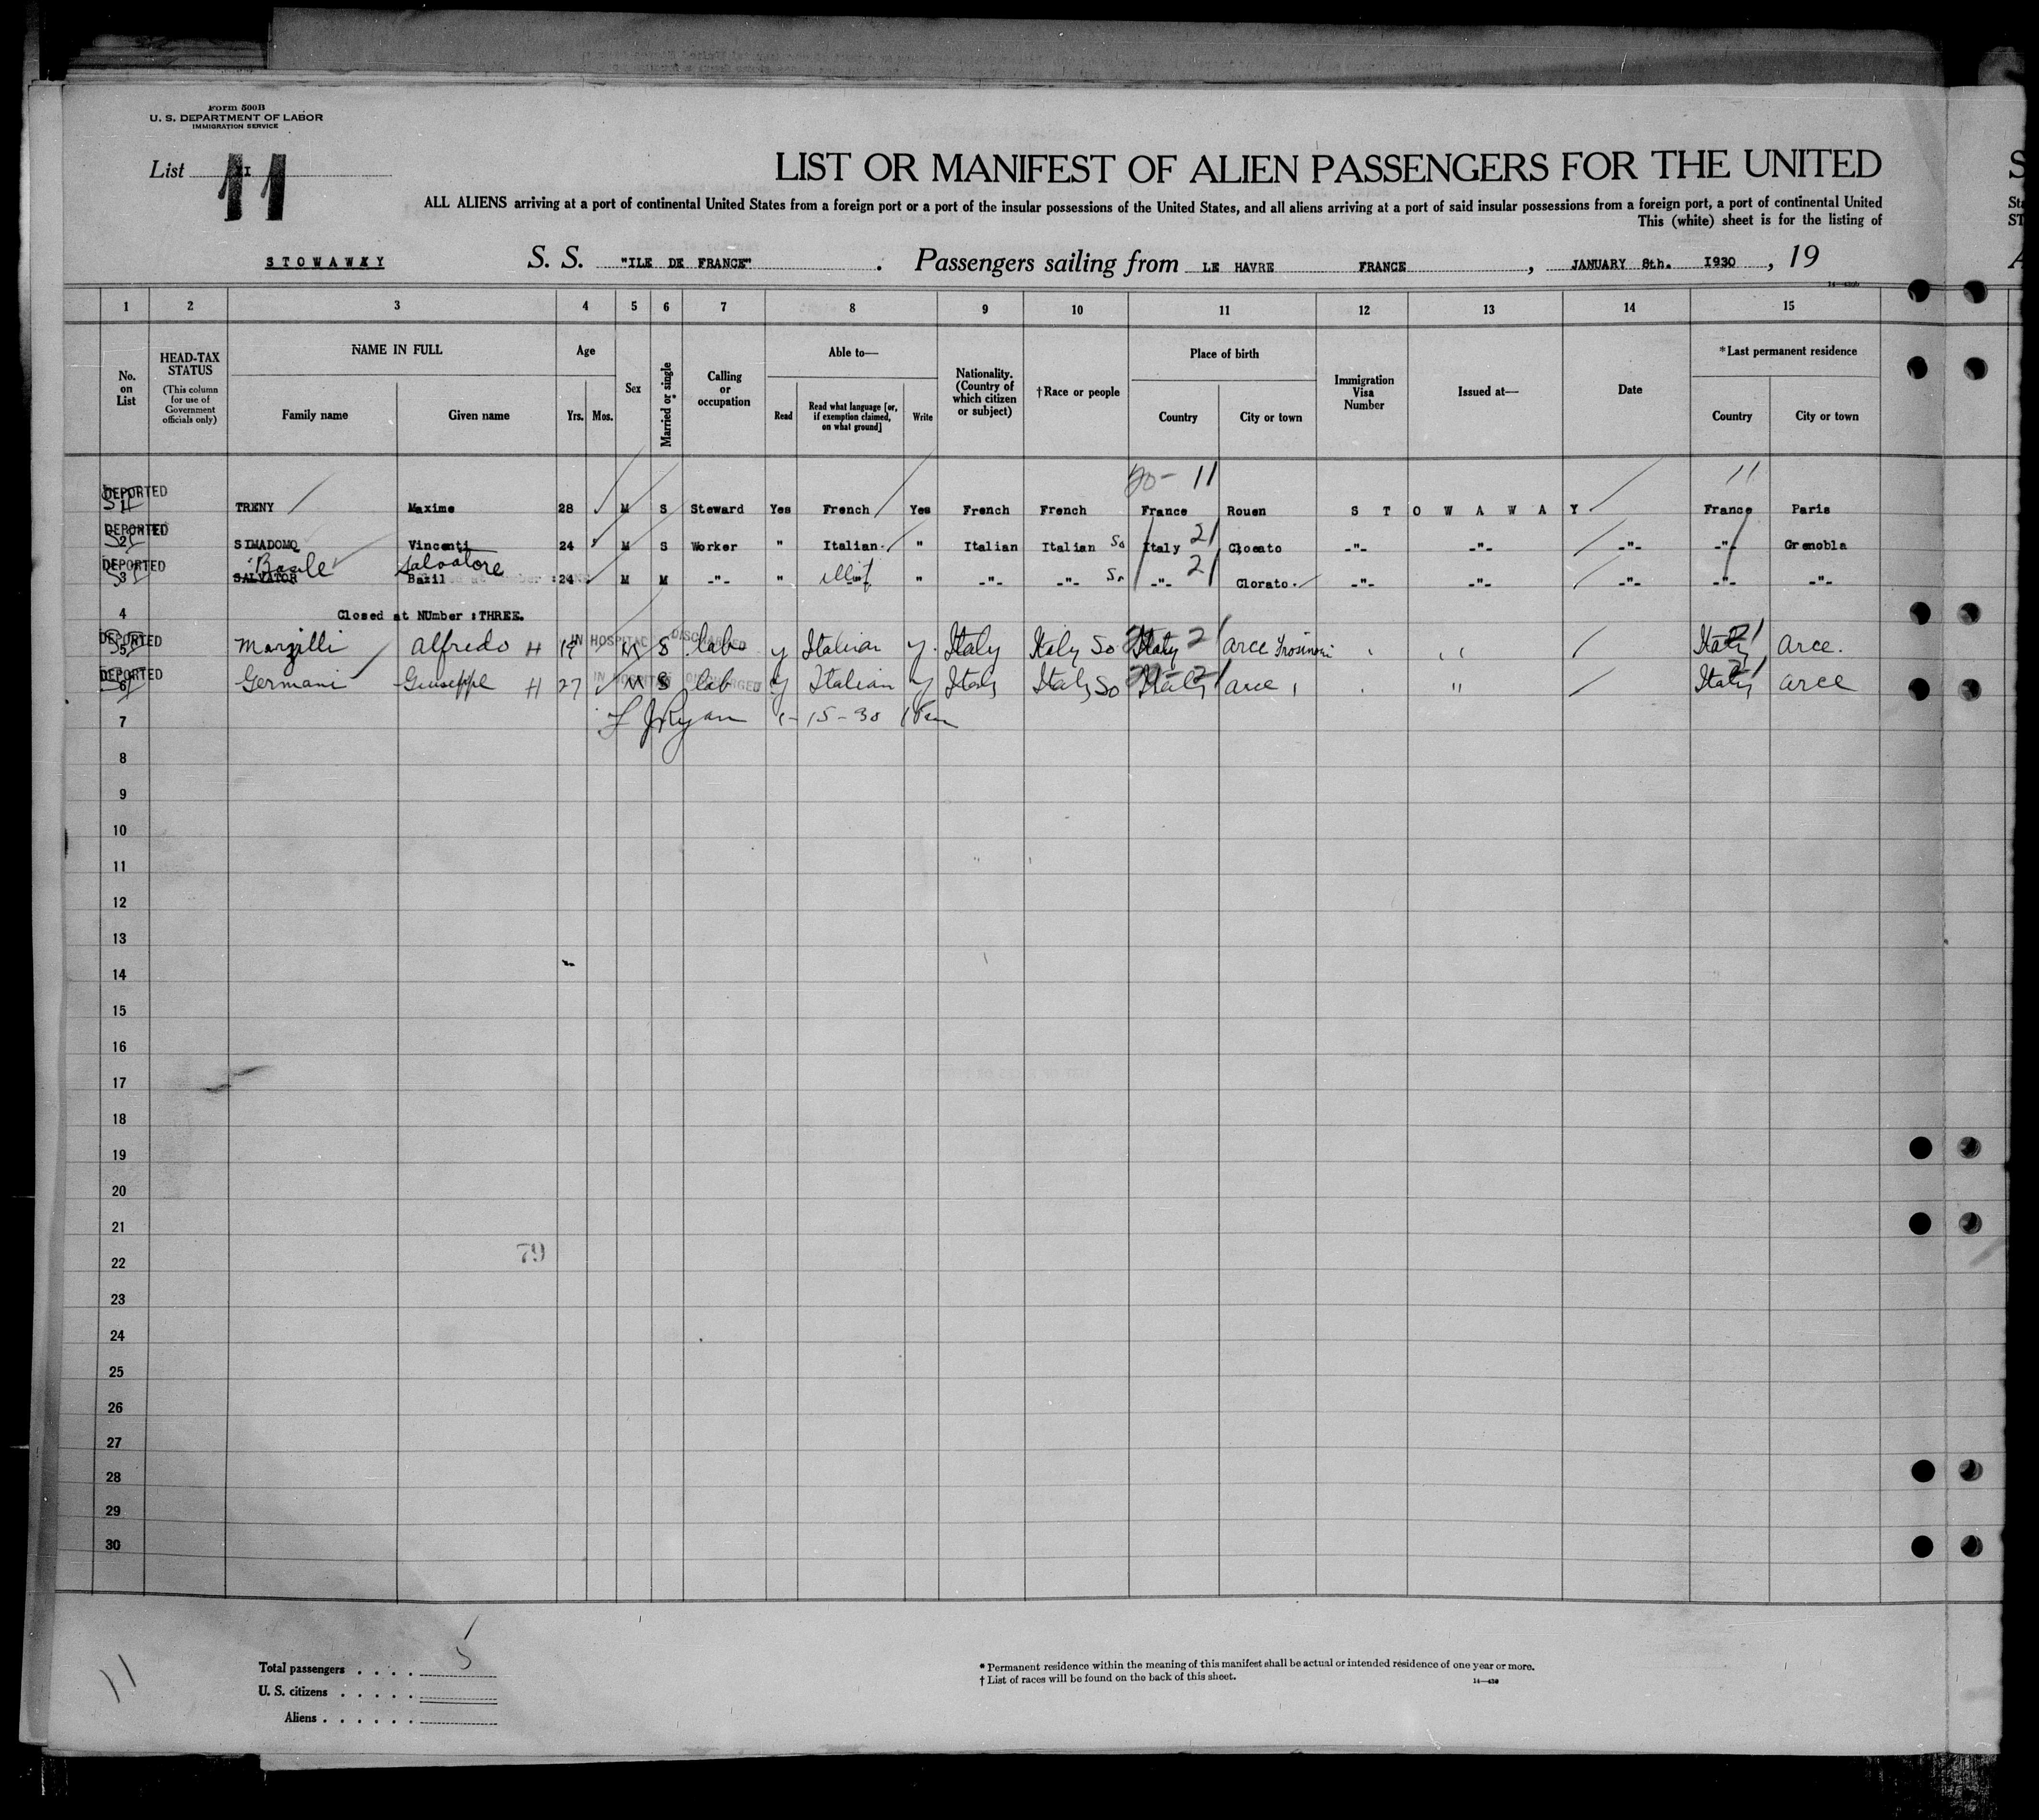 Form 500B
U. S. DEPARTMENT OF LABOR
IMMIGRATION SERVICE
List 11
LIST OR MANIFEST OF ALIEN PASSENGERS FOR THE UNITED
ALL ALIENS arriving at a port of continental United States from a foreign port or a port of the insular possessions of the United States, and all aliens arriving at a port of said insular possessions from a foreign port, a port of continental United
This (white) sheet is for the listing of
STOWAWAY S. S. "ILE DE FRANCE" . Passengers sailing from LE HAVRE FRANCE , JANUARY 8th. 1930 , 19
1 2 3 4 5 6 7 8 9 10 11 12 13 14 15
No. on List
HEAD-TAX STATUS
(This column for use of Government officials only)
NAME IN FULL
Family name Given name
Age
Yrs. Mos.
Sex
Married or single
Calling or occupation
Able to—
Read
Read what language [or, if exemption claimed, on what ground]
Write
Nationality. (Country of which citizen or subject)
†Race or people
Place of birth
Country City or town
Immigration Visa Number
Issued at—
Date
*Last permanent residence
Country City or town
20- 11 11
DEPORTED
1 TRENY Maxime 28 M S Steward Yes French Yes French French France Rouen S T O W A W A Y France Paris
DEPORTED
2 SIMADOMO Vincenti 24 M S Worker " Italian. " Italian Italian So Italy 21 -"- -"- -"- -"- Grenobla
Basile Salvatore
DEPORTED
3 SALVATOR Bazil 24 M M -"- " illit " -"- -"- So -"- 21 Clorato. -"- -"- -"- -"- -"-
4 Closed at NUmber :THREE.
IN HOSPITAL DISCHARGED
DEPORTED
5 Marzilli Alfredo H 19 M S lab y Italian y Italy Italy So Italy 21 Arce Frosinoni " Italy 21 Arce.
IN HOSPITAL DISCHARGED
DEPORTED
6 Germani Giuseppe H 27 M S lab y Italian y Italy Italy So Italy 21 Arce " Italy 21 Arce
7 F J Ryan 1-15-30
8
9
10
11
12
13
14
15
16
17
18
19
20
21
79
22
23
24
25
26
27
28
29
30
11
Total passengers . . . . 5
U. S. citizens . . . . .
Aliens . . . . . .
* Permanent residence within the meaning of this manifest shall be actual or intended residence of one year or more.
† List of races will be found on the back of this sheet.